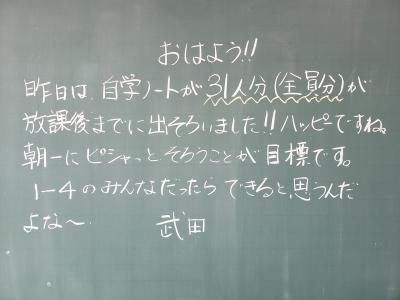 おはよう!!
昨日は、自学ノートが31人分(全員分)が
放課後までに出そろいました!!ハッピーですね。
朝一にピシャっとそろうことが目標です。
1-4のみんなだったらできると思うんだ
よな〜 武田